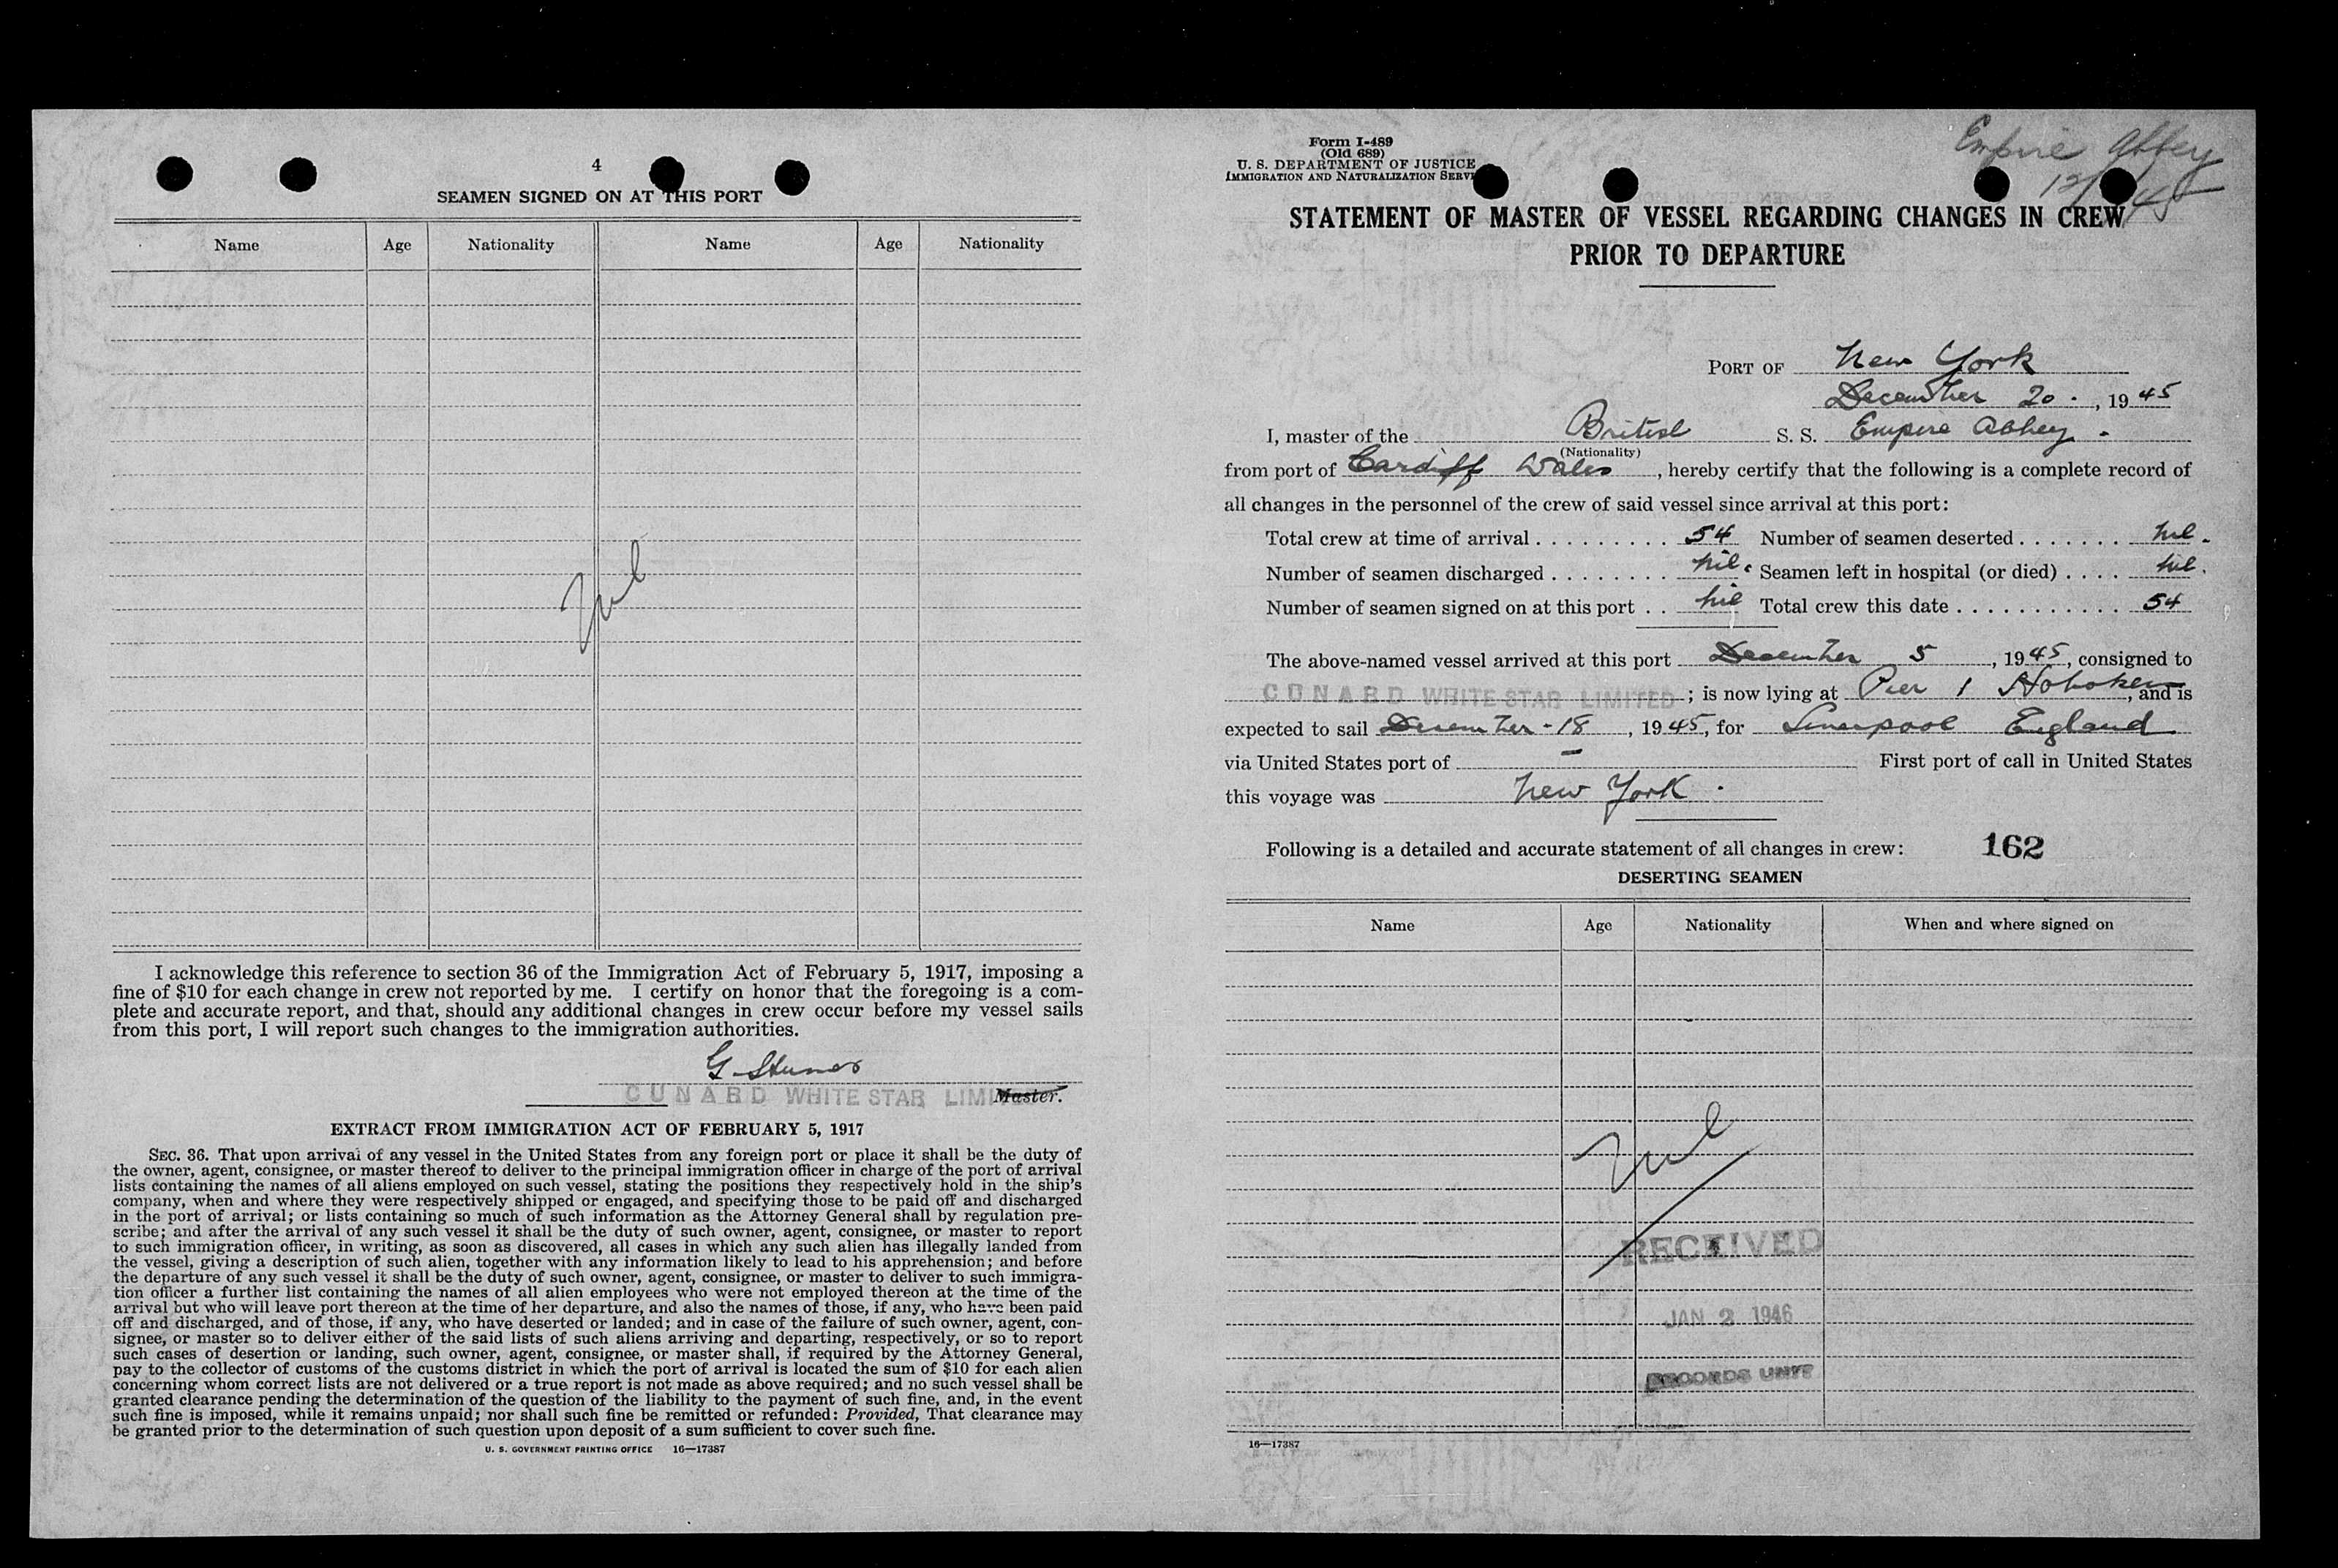 4
SEAMEN SIGNED ON AT THIS PORT
Name Age Nationality Name Age Nationality
Nil
I acknowledge this reference to section 36 of the Immigration Act of February 5, 1917, imposing a
fine of $10 for each change in crew not reported by me. I certify on honor that the foregoing is a com-
plete and accurate report, and that, should any additional changes in crew occur before my vessel sails
from this port, I will report such changes to the immigration authorities.
G.
CUNARD WHITE STAR LIMI Master.
EXTRACT FROM IMMIGRATION ACT OF FEBRUARY 5, 1917
SEC. 36. That upon arrival of any vessel in the United States from any foreign port or place it shall be the duty of
the owner, agent, consignee, or master thereof to deliver to the principal immigration officer in charge of the port of arrival
lists containing the names of all aliens employed on such vessel, stating the positions they respectively hold in the ship's
company, when and where they were respectively shipped or engaged, and specifying those to be paid off and discharged
in the port of arrival; or lists containing so much of such information as the Attorney General shall by regulation pre-
scribe; and after the arrival of any such vessel it shall be the duty of such owner, agent, consignee, or master to report
to such immigration officer, in writing, as soon as discovered, all cases in which any such alien has illegally landed from
the vessel, giving a description of such alien, together with any information likely to lead to his apprehension; and before
the departure of any such vessel it shall be the duty of such owner, agent, consignee, or master to deliver to such immigra-
tion officer a further list containing the names of all alien employees who were not employed thereon at the time of the
arrival but who will leave port thereon at the time of her departure, and also the names of those, if any, who have been paid
off and discharged, and of those, if any, who have deserted or landed; and in case of the failure of such owner, agent, con-
signee, or master so to deliver either of the said lists of such aliens arriving and departing, respectively, or so to report
such cases of desertion or landing, such owner, agent, consignee, or master shall, if required by the Attorney General,
pay to the collector of customs of the customs district in which the port of arrival is located the sum of $10 for each alien
concerning whom correct lists are not delivered or a true report is not made as above required; and no such vessel shall be
granted clearance pending the determination of the question of the liability to the payment of such fine, and, in the event
such fine is imposed, while it remains unpaid; nor shall such fine be remitted or refunded: Provided, That clearance may
be granted prior to the determination of such question upon deposit of a sum sufficient to cover such fine.
U. S. GOVERNMENT PRINTING OFFICE 16—17387
Form I-489
(Old 689)
U. S. DEPARTMENT OF JUSTICE
IMMIGRATION AND NATURALIZATION SERVI
Empire Abbey
12/ /45
STATEMENT OF MASTER OF VESSEL REGARDING CHANGES IN CREW
PRIOR TO DEPARTURE
PORT OF New York
December 20., 1945
I, master of the British S. S. Empire Abbey.
(Nationality)
from port of Cardiff Wales, hereby certify that the following is a complete record of
all changes in the personnel of the crew of said vessel since arrival at this port:
Total crew at time of arrival . . . . . . . . . 54 Number of seamen deserted . . . . . . . nil.
Number of seamen discharged . . . . . . . . nil. Seamen left in hospital (or died) . . . . nil.
Number of seamen signed on at this port . . nil Total crew this date . . . . . . . . . . . 54
The above-named vessel arrived at this port December 5, 1945, consigned to
CUNARD WHITE STAR LIMITED; is now lying at Pier 1 Hoboken, and is
expected to sail December - 18, 1945, for Liverpool England
via United States port of — First port of call in United States
this voyage was New York.
Following is a detailed and accurate statement of all changes in crew: 162
DESERTING SEAMEN
Name Age Nationality When and where signed on
Nil
RECEIVED
JAN 2 1946
RECORDS UNIT
16—17387